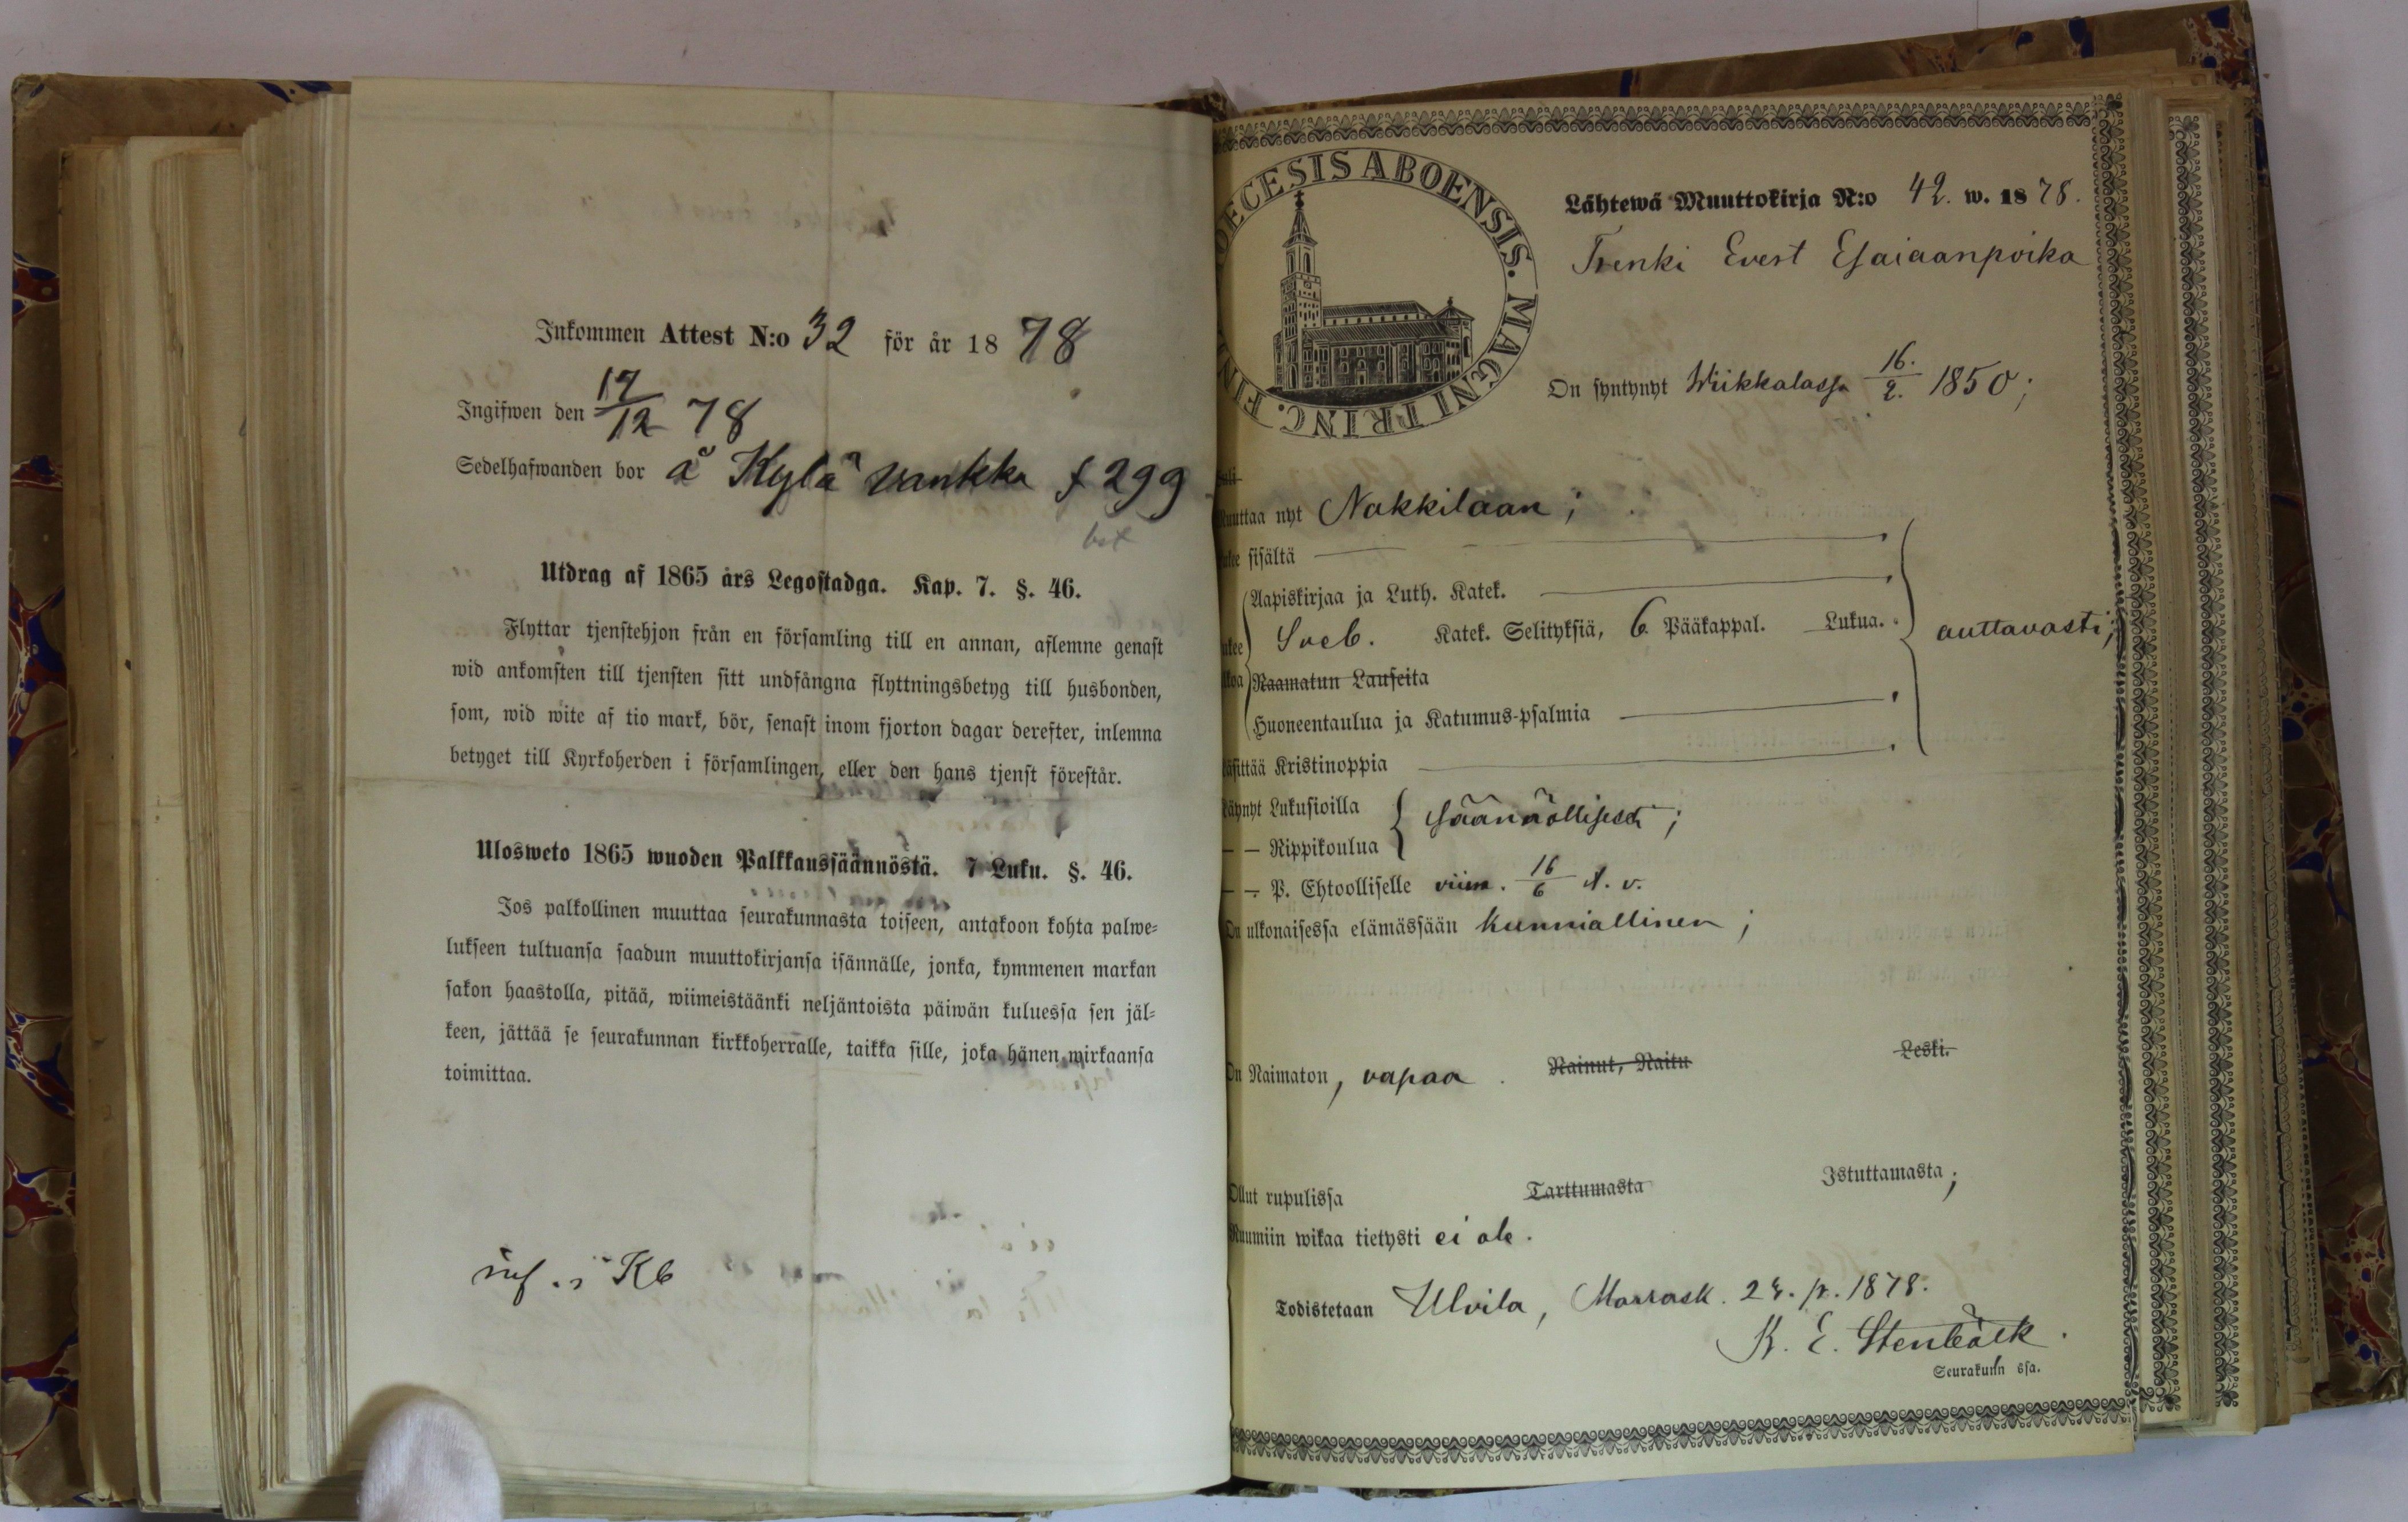 Inkommen Attest N:o 32 för år 1878
Ingifwen den 17/12 78
Sedelhafwanden bor å Kylä vankka f 299
bet
Utdrag af 1865 års Legostadga. Kap. 7. §. 46.
Flyttar tjenstehjon från en församling till en annan, aflemne genast
wid ankomsten till tjensten sitt undfångna flyttningsbetyg till husbonden,
som, wid wite af tio mark, bör, senast inom fjorton dagar derefter, inlemna
betyget till Kyrkoherden i församlingen, eller den hans tjenst förestår.
Ulosweto 1865 wuoden Palkkaussäännöstä. 7 Luku. §. 46.
Jos palkollinen muuttaa seurakunnasta toiseen, antakoon kohta palwe-
lukseen tultuansa saadun muuttokirjansa isännälle, jonka, kymmenen markan
sakon haastolla, pitää, wiimeistäänki neljäntoista päiwän kuluessa sen jäl-
keen, jättää se seurakunnan kirkkoherralle, taikka sille, joka hänen wirkaansa
toimittaa.
inf. i Kb
DIOECESIS ABOENSIS. MAGNI PRINC. FIN
Lähtewä Muuttokirja N:o 42. w. 1878.
Trenki Evert Esaiaanpoika
On syntynyt Wiikkalassa 16./2. 1850;
Muuttaa nyt Nakkilaan;
Lukee sisältä
Aapiskirjaa ja Luth. Katek.
Sveb. Katek. Selityksiä, 6 Pääkappal. Lukua. auttavasti;
Raamatun Lauseita
Huoneentaulua ja Katumus-psalmia
Käsittää Kristinoppia
Käynyt Lukusioilla
säännöllisesti;
— — Rippikoulua
— — P. Ehtoolliselle viim. 16/6 t. v.
On ulkonaisessa elämässään kunniallinen;
On Naimaton, vapaa. Nainut, Naitu Leski.
Ollut rupulissa Tarttumasta Istuttamasta;
Ruumiin wikaa tietysti ei ole.
Todistetaan Ulvila, Marrask. p. 1878.
K. E. Stenbäck.
Seurakunn ssa.